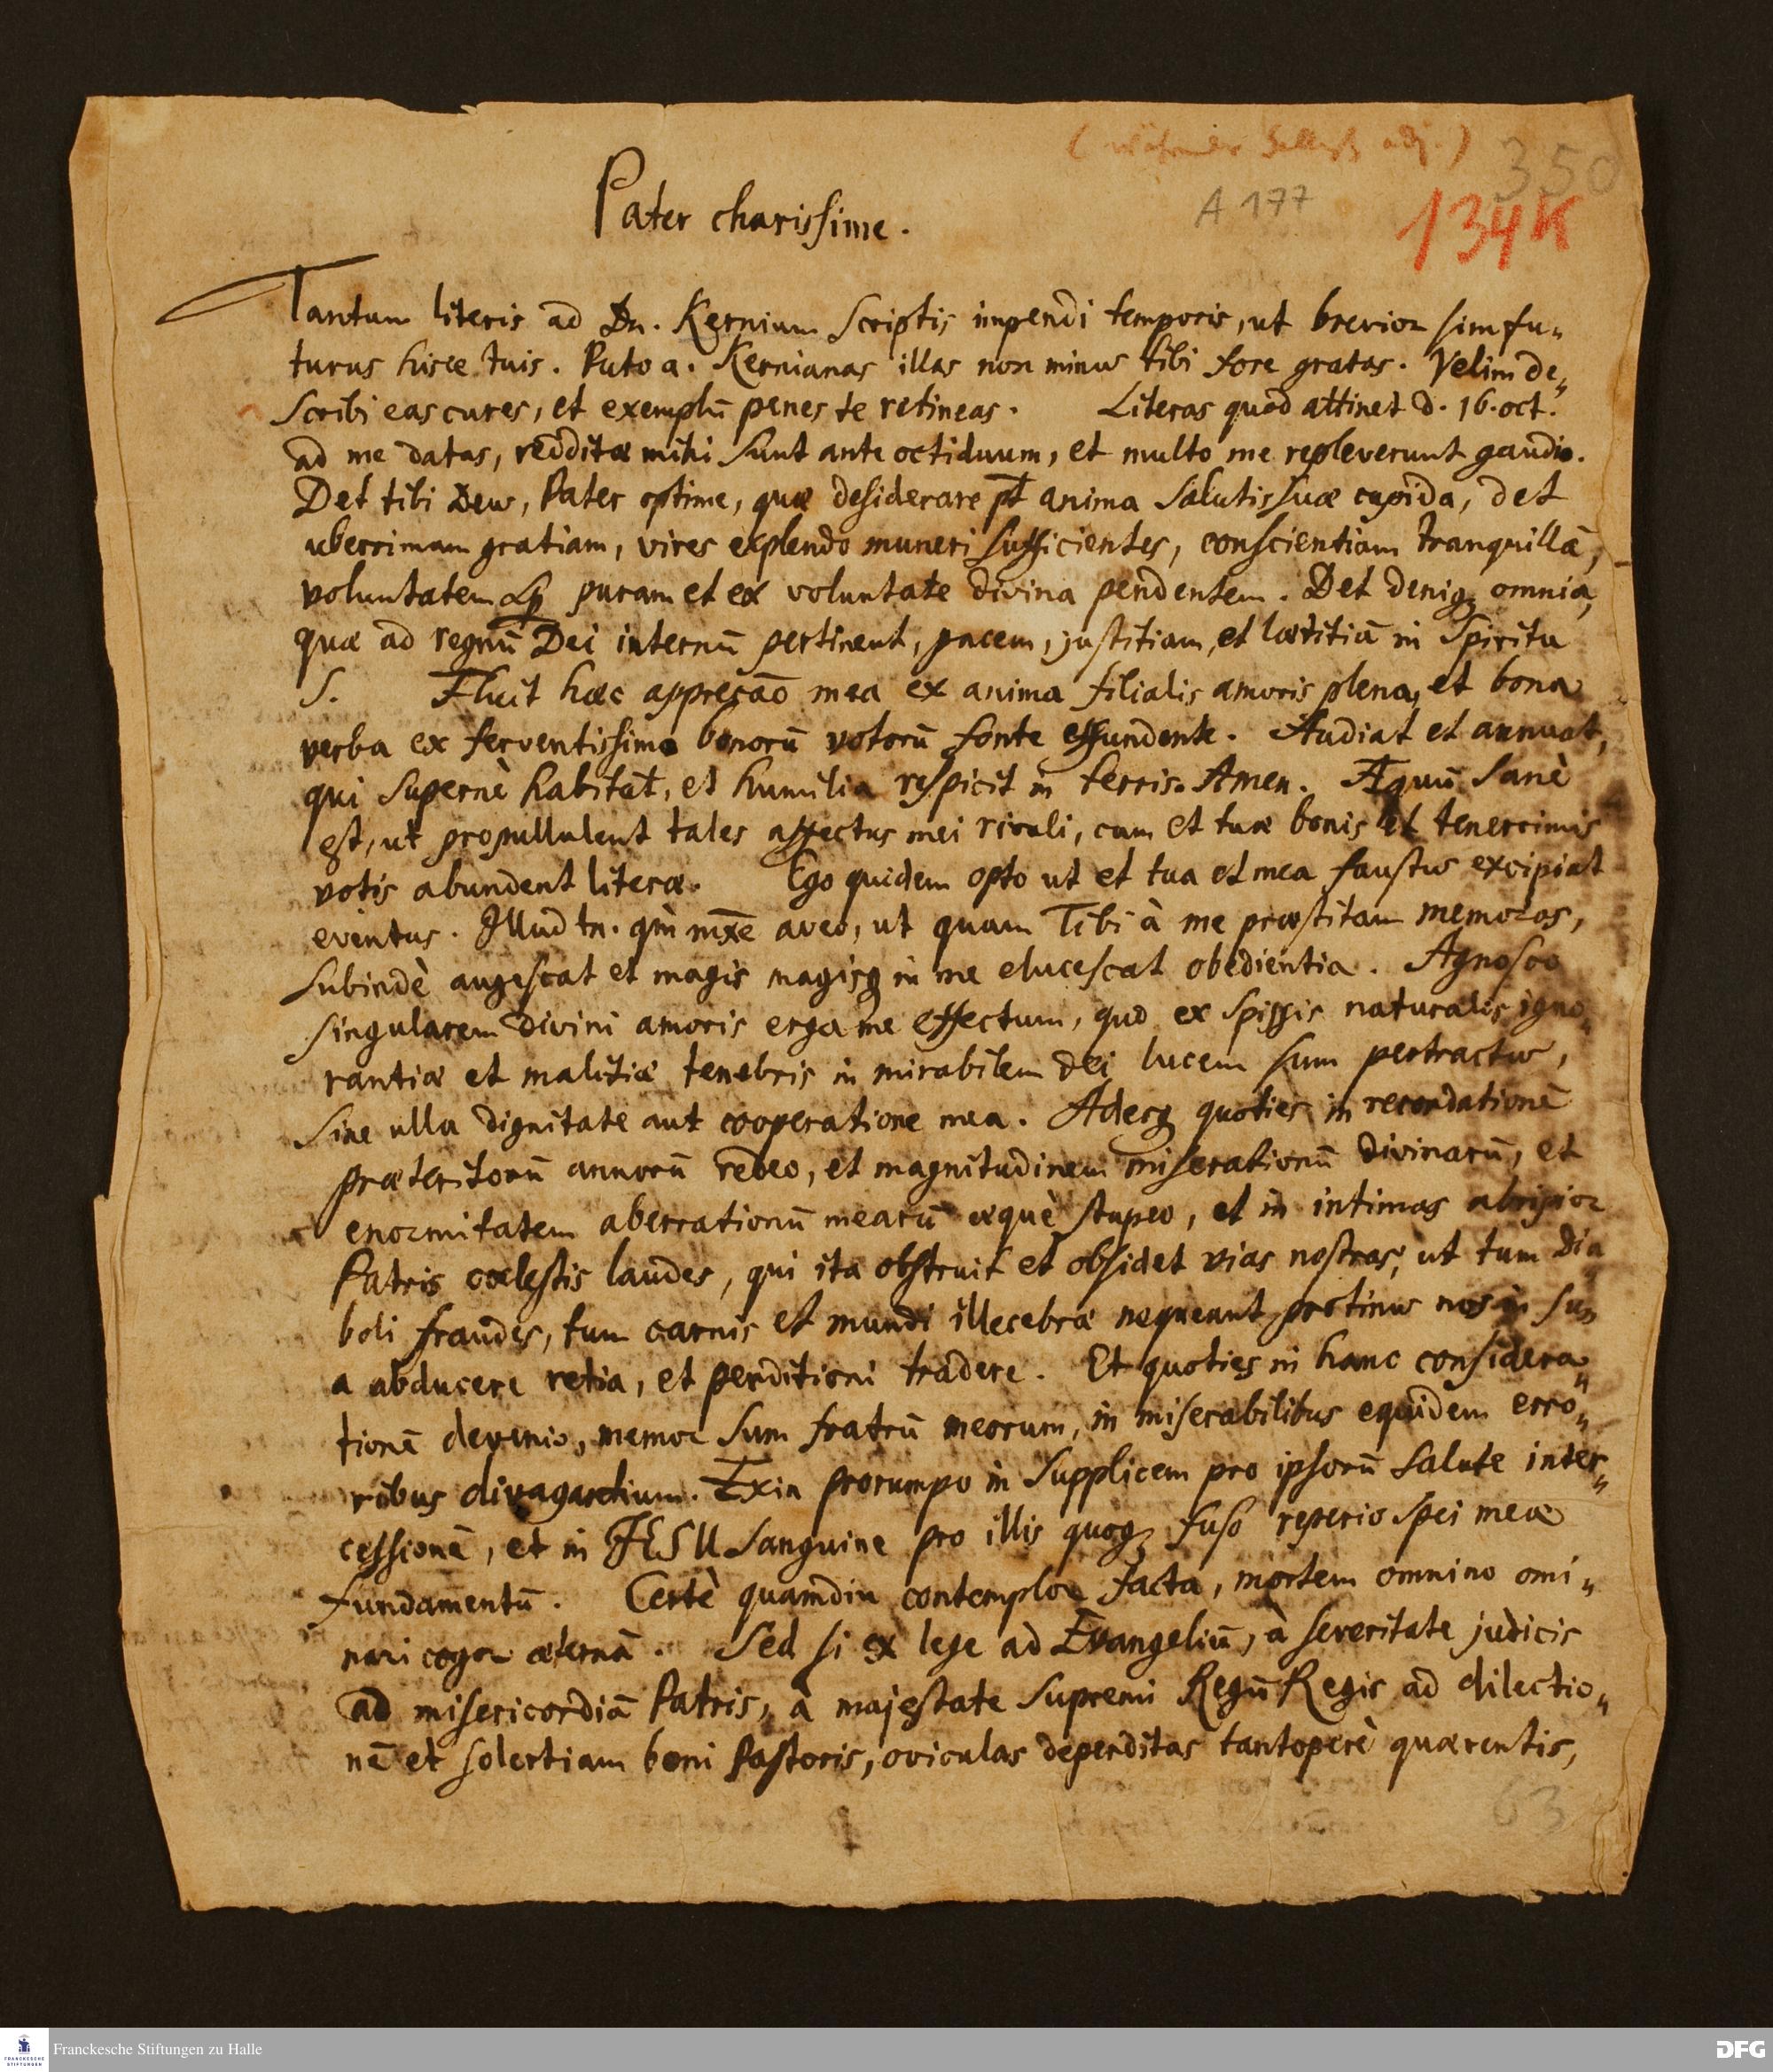 350
A 177
134K
Pater charissime.
Tantum literis ad Dn. Kernium scriptis impendi temporis, ut brevior sim fu„
turus hisce tuis. Puto a. Kernianas illas non minus tibi fore gratas. Velim de„
scribi eas cures, et exemplū penes te retineas. Literas quod attinet d. 16. oct.
ad me datas, redditæ mihi sunt ante octiduum, et multo me repleverunt gaudio.
Det tibi Deus, Pater optime, quæ desiderare pt anima salutis suæ cupida, det
uberrimam gratiam, vires explendo muneri sufficientes, conscientiam tranquillā,
voluntatem puram et ex voluntate divina pendentem. Det deniq; omnia,
quæ ad regnū Dei internū pertinent, pacem, justitiam, et lætitiā in Spiritu
S. Fluit hæc apprecāo mea ex anima filialis amoris plena, et bona
verba ex ferventissimo bonorū votorū fonte effundente. Audiat et annuat,
qui supernè habitat, et humilia respicit in terris. Amen. Æquū sanè
est, ut propullulent tales affectus mei rivuli, cum et tuæ bonis et tenerrimis
votis abundent literæ. Ego quidem opto ut et tua et mea faustus excipiat
eventus. Illud tn. qm̀ mxē aveo, ut quam Tibi à me præstitam memoras,
subindè augescat et magis magisq; in me elucescat obedientia. Agnosco
singularem divini amoris erga me effectum, quod ex spissis naturalis igno„
rantiæ et malitiæ tenebris in mirabilem dei lucem sum pertractus,
sine ulla dignitate aut cooperatione mea. Adeoq; quoties in recordationē
præteritorū annorū redeo, et magnitudinem miserationū divinarū, et
enormitatem aberrationū mearū æquè stupeo, et in intimas abripior
Patris cœlestis laudes, qui ita obstruit et obsidet vias nostras, ut tum dia„
boli fraudes, tum carnis et mundi illecebræ nequeant protinus nos in su„
a abducere retia, et perditioni tradere. Et quoties in hanc considera„
tionē devenio, memor sum fratrū meorum, in miserabilibus equidem erro„
ribus divagantium. Exin prorumpo in supplicem pro ipsorū salute inter„
cessionē, et in JESU sanguine pro illis quoq; fuso reperio spei meæ
fundamentū. Certè quamdiu contemplor facta, mortem omnino omi„
nari cogor æternā. Sed si ex lege ad Evangeliū, à severitate judicis
ad misericordiā Patris, à majestate supremi Regū Regis ad dilectio„
nē et solertiam boni Pastoris, oviculas deperditas tantoperè quærentis,
63
Franckesche Stiftungen zu Halle
FRANCKESCHE STIFTUNGEN
DFG